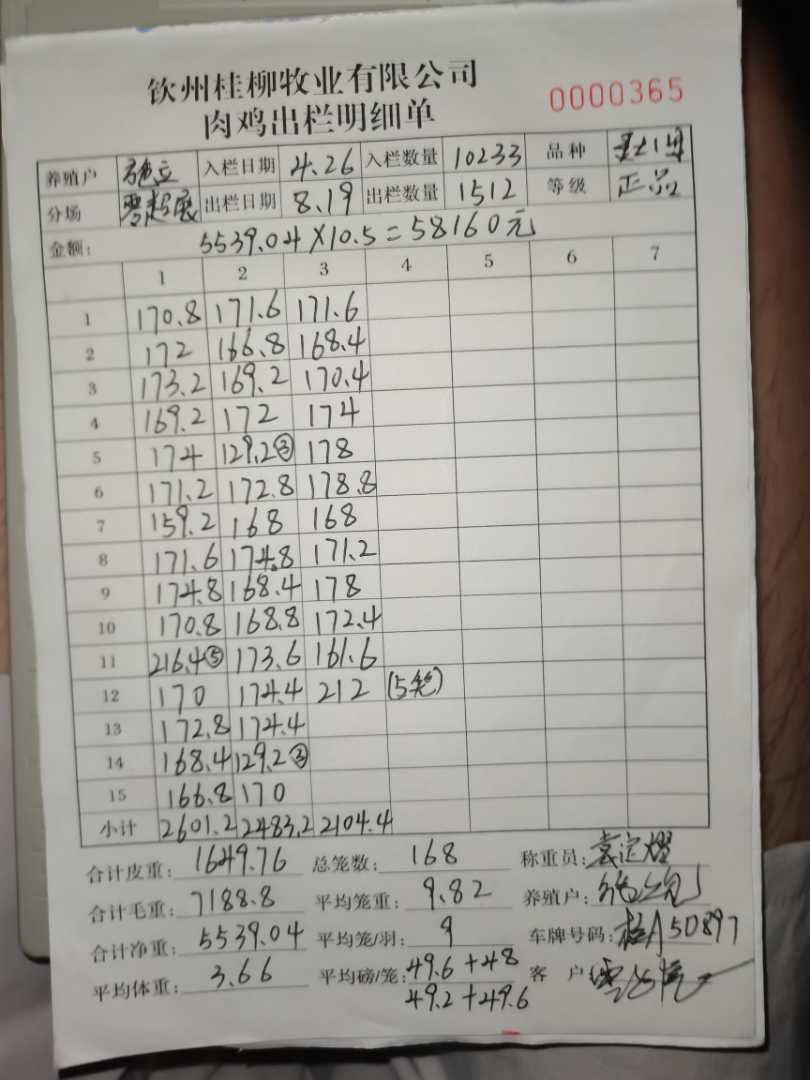 钦州桂柳牧业有限公司
肉鸡出栏明细单 0000365
养殖户 入栏日期 4.26 入栏数量 10233 品种
分场 出栏日期 8.19 出栏数量 1512 等级 正品
金额: 5539.04×10.5=58160元
1 2 3 4 5 6 7
1 170.8 171.6 171.6
2 172 166.8 168.4
3 173.2 169.2 170.4
4 169.2 172 174
5 174 129.2③ 178
6 171.2 172.8 178.8
7 159.2 168 168
8 171.6 174.8 171.2
9 174.8 168.4 178
10 170.8 168.8 172.4
11 216.4⑤ 173.6 161.6
12 170 174.4 212 (5笼)
13 172.8 174.4
14 168.4 129.2③
15 166.8 170
小计 2601.2 2483.2 2104.4
合计皮重: 1649.76 总笼数: 168 称重员:
合计毛重: 7188.8 平均笼重: 9.82 养殖户:
合计净重: 5539.04 平均笼/羽: 9 车牌号码: 桂A50897
平均体重: 3.66 平均磅/笼: 49.6+48 客户
49.2+49.6